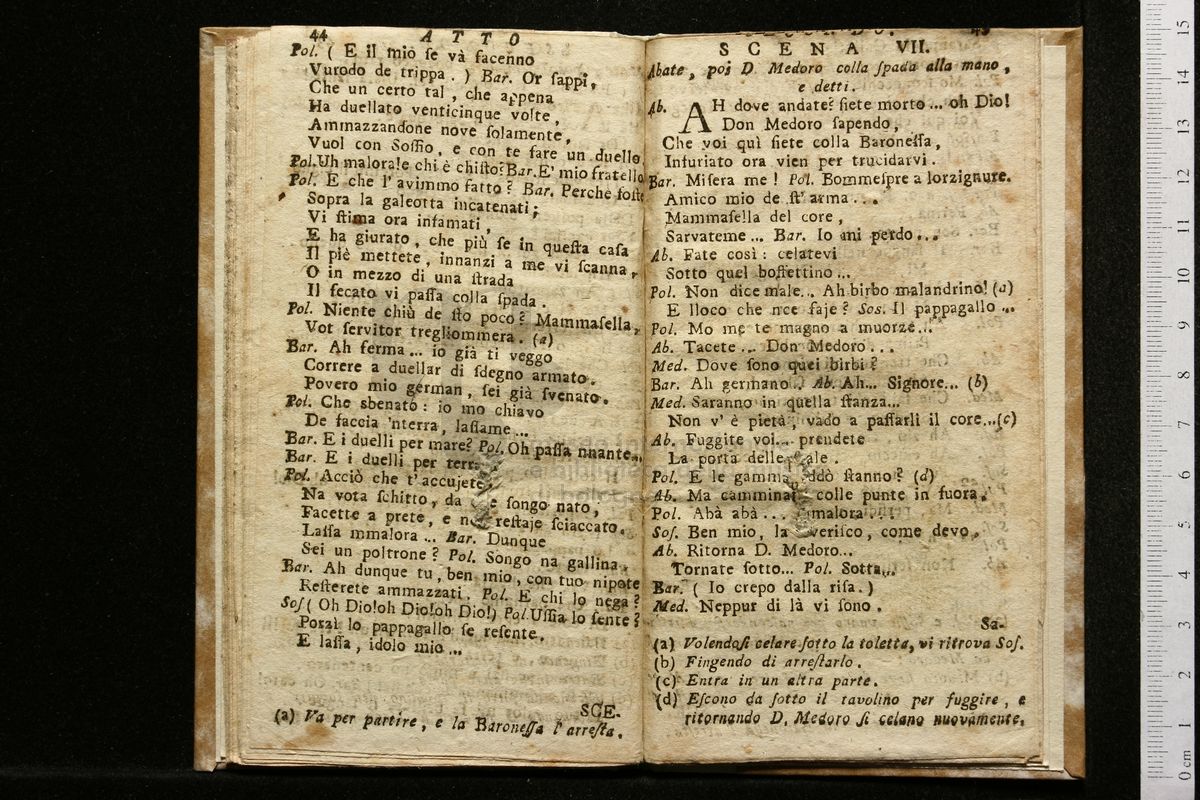 44 ATTO
Pol. ( E il mio ſe và facenno
Vurodo de trippa . ) Bar. Or ſappi,
Che un certo tal , che appena
Ha duellato venticinque volte,
Ammazzandone nove ſolamente,
Vuol con Soſſio, e con te fare un duello
Pol.Uh malora!e chi è chiſto?Bar.E' mio fratello
Pol. E che l' avimmo fatto ? Bar. Perchè foſte
Sopra la galeotta incatenati;
Vi ſtima ora infamati,
E ha giurato, che più ſe in queſta caſa
Il piè mettete, innanzi a me vi ſcanna,
O in mezzo di una ſtrada
Il fecato vi paſſa colla ſpada .
Pol. Niente chiù de ſto poco? Mammaſella,
Vot ſervitor tregliommera. (a)
Bar. Ah ferma ... io già ti veggo
Correre a duellar di ſdegno armato.
Povero mio german, ſei già ſvenato.
Pol. Che sbenato : io mo chiavo
De faccia 'nterra, laſſame ...
Bar. E i duelli per mare? Pol. Oh paſſa nnante...
Bar. E i duelli per
Pol. Acciò che t'accujete
Na vota ſchitto, da ſongo nato,
Facette a prete, e reſtaje ſciaccato.
Laſſa mmalora ... Bar. Dunque
Sei un poltrone ? Pol. Songo na gallina.
Bar. Ah dunque tu, ben mio, con tuo nipote
Reſterete ammazzati. Pol. E chi lo nega?
Soſ( Oh Dio!oh Dio!oh Dio!) Pol.Uſſia lo ſente?
Porzì lo pappagallo ſe reſente,
E laſſa, idolo mio ...
SCE-
(a) Va per partire, e la Baroneſſa l'arreſta.
SCENA VII.
Abate, poi D. Medoro colla ſpada alla mano,
e detti.
Ab. AH dove andate? ſiete morto ... oh Dio!
Don Medoro ſapendo,
Che voi quì ſiete colla Baroneſſa,
Infuriato ora vien per trucidarvi.
Bar. Miſera me ! Pol. Bommeſpre a lorzignure.
Amico mio de ſt' arma ...
Mammaſella del core,
Sarvateme ... Bar. Io mi perdo ...
Ab. Fate così : celatevi
Sotto quel boffettino ...
Pol. Non dice male... Ah birbo malandrino! (a)
E lloco che nce faje ? Sos. Il pappagallo ...
Pol. Mo me te magno a muorze...
Ab. Tacete ... Don Medoro ...
Med. Dove ſono quei birbi ?
Bar. Ah germano ... Ab. Ah... Signore... (b)
Med. Saranno in quella ſtanza...
Non v' è pietà, vado a paſſarli il core...(c)
Ab. Fuggite voi... prendete
La porta delle
Pol. E le ſtanno ? (d)
Ab. Ma colle punte in fuora.
Pol. Abà abà ... malora ...
Soſ. Ben mio, la come devo.
Ab. Ritorna D. Medoro...
Tornate ſotto... Pol. Sotta...
Bar. ( Io crepo dalla riſa.)
Med. Neppur di là vi ſono .
Sa-
(a) Volendoſi celare ſotto la toletta, vi ritrova Soſ.
(b) Fingendo di arreſtarlo.
(c) Entra in un altra parte.
(d) Eſcono da ſotto il tavolino per fuggire, e
ritornando D. Medoro ſi celano nuovamente.
15
14
13
12
11
10
9
8
7
6
5
4
3
2
1
0 cm